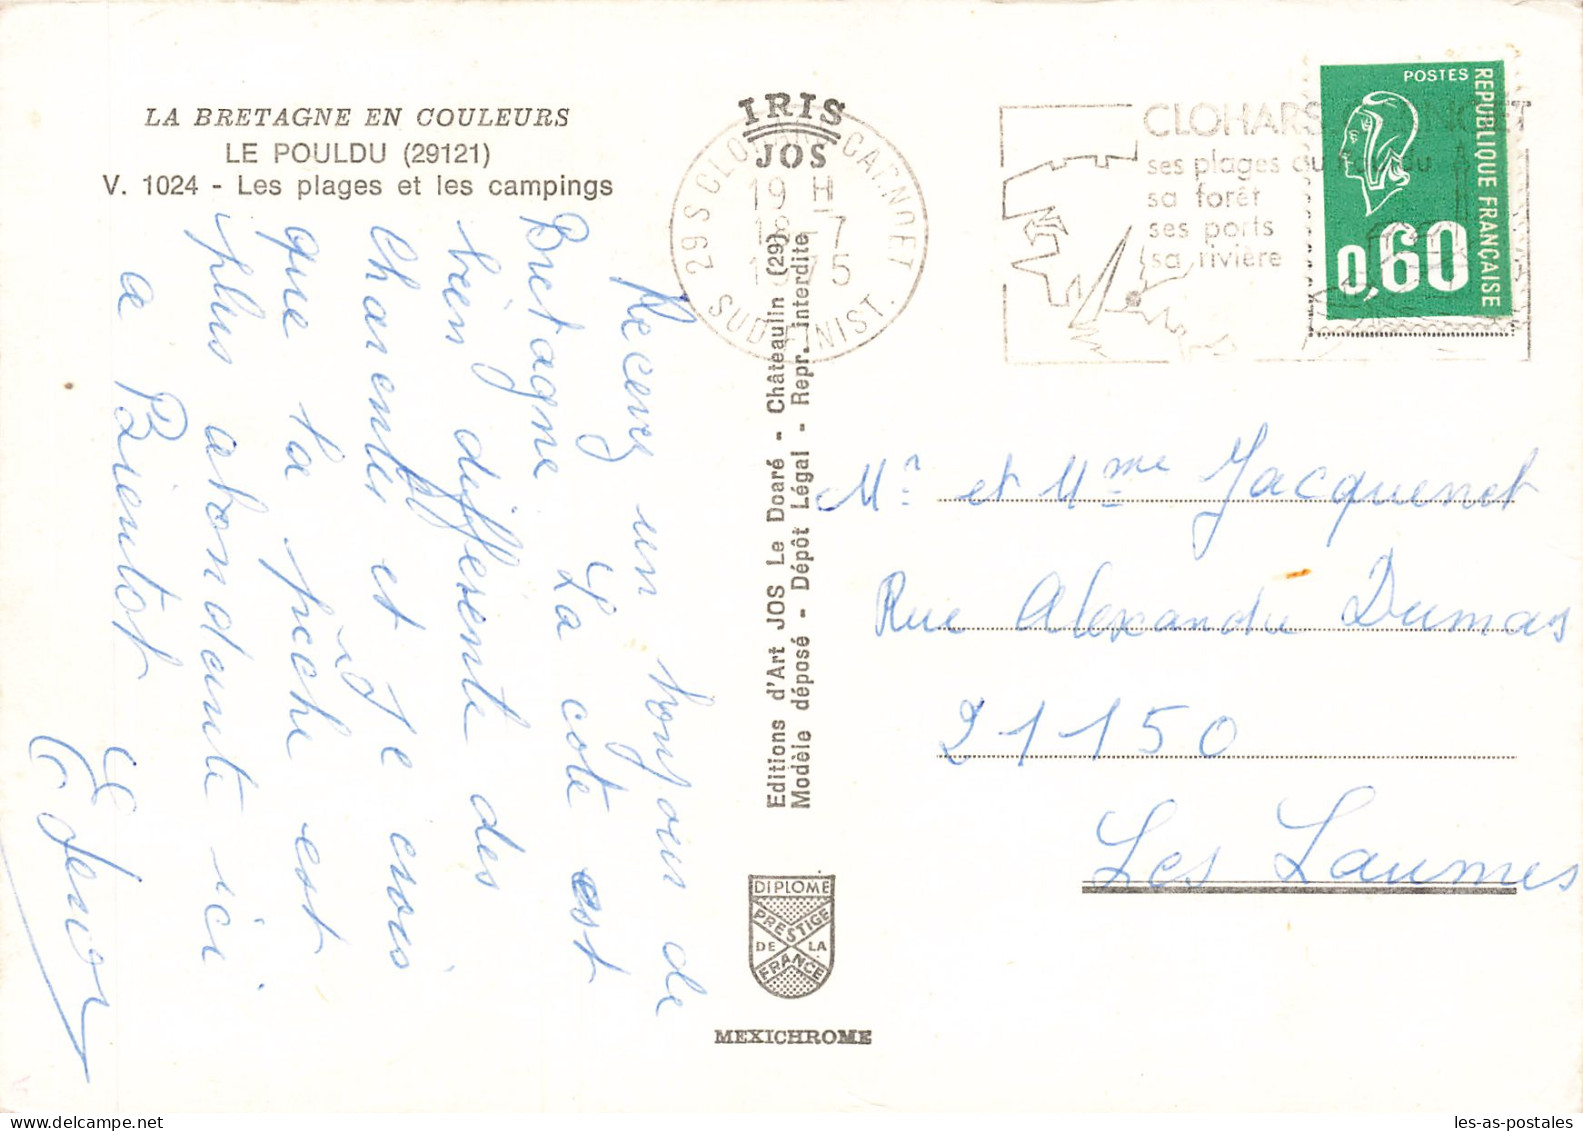 LA BRETAGNE EN COULEURS
LE POULDU (29121)
V. 1024 - Les plages et les campings
Recevez un bonjour de
Bretagne. La cote est
bien differente des
Charentes et Je crois
que la pêche est
plus abondante ici
a Bientot
IRIS
JOS
Editions d'Art JOS Le Doaré - Châteaulin (29)
Modèle déposé - Dépôt Légal - Repr. Interdite
DIPLOME
PRESTIGE
DE LA
FRANCE
MEXICHROME
29 S CLOHARS CARNOET
19 H
18-7
1975
SUD FINIST.
CLOHARS
ses plages du
sa forêt
ses ports
sa rivière
POSTES
REPUBLIQUE FRANÇAISE
0,60
Mr et Mme Jacquenet
Rue Alexandre Dumas
21150
Les Laumes
les-as-postales